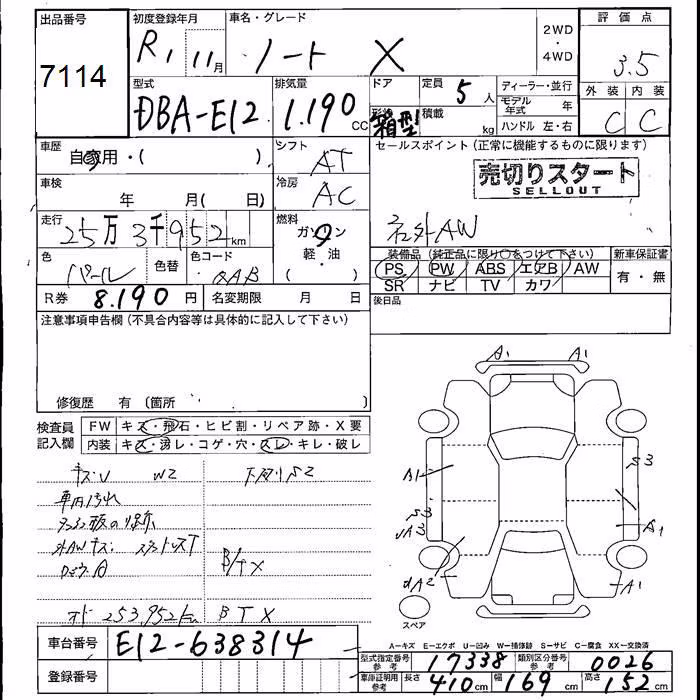 出品番号
7114
初度登録年月
R1 11月
車名・グレード
ノート X
2WD
・
4WD
評価点
3.5
外装 内装
C C
型式
DBA-E12
排気量
1.190 CC
ドア
形状
箱型
定員
5人
積載
kg
ディーラー・並行
モデル年式 年
ハンドル 左・右
車歴
自家用・( )
シフト
AT
車検
年 月( 日)
冷房
AC
セールスポイント(正常に機能するものに限ります)
売切りスタート
SELLOUT
社外AW
走行
25万3千952km
燃料
ガソリン
軽・油
( )
色
パール
色替
色コード
QAB
装備品(純正品に限り○をつけて下さい)
PS PW ABS エアB AW
SR ナビ TV カワ
新車保証書
有・無
R券 8.190円
名変期限 月 日
後日品
注意事項申告欄(不具合内容等は具体的に記入して下さい)
修復歴 有〔箇所 〕
検査員
記入欄
FW キズ・飛石・ヒビ割・リペア跡・X要
内装 キズ・湯レ・コゲ・穴・スレ・キレ・破レ
キズU W2
下廻りS2
車内汚れ
外AWキズ
B/TX
オド 253,952km
BTX
A1 A1
A1
S3
S3
A1
A2
A1
スペア
A-キズ E-エクボ U-凹み W-補修跡 S-サビ C-腐食 XX-交換済
車台番号
E12-638314
登録番号
型式指定番号
参考
17338
類別区分番号
参考
0026
車庫証明用
参考
長さ 410cm
幅 169cm
高さ 152cm